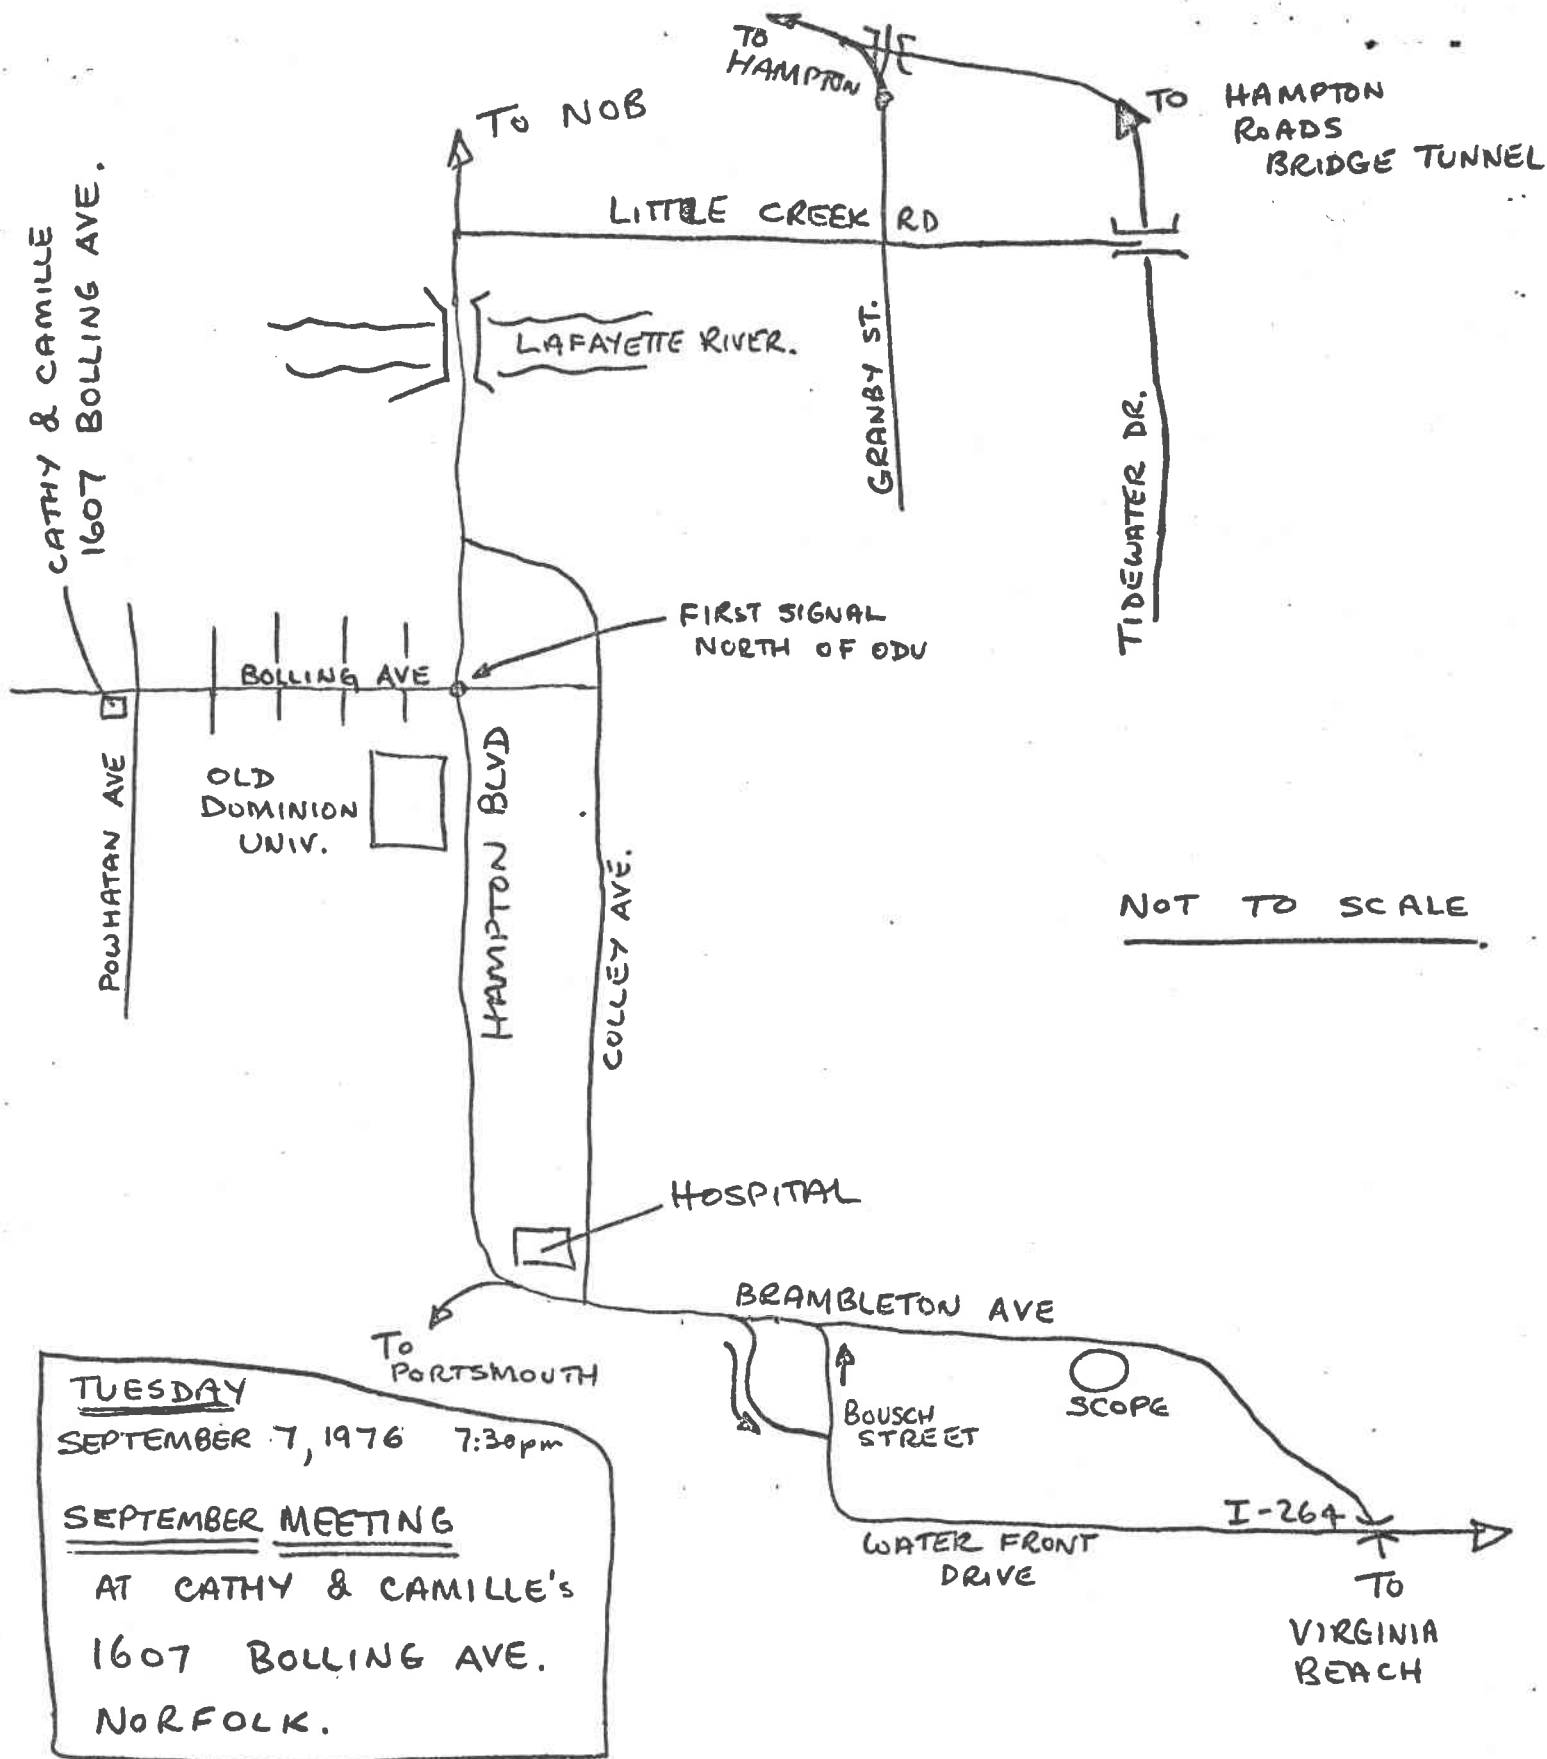 TO
HAMPTON
TO HAMPTON
ROADS
BRIDGE TUNNEL
TO NOB
LITTLE CREEK RD
CATHY & CAMILLE
1607 BOLLING AVE.
LAFAYETTE RIVER.
GRANBY ST.
TIDEWATER DR.
FIRST SIGNAL
NORTH OF ODU
BOLLING AVE
POWHATAN AVE
OLD
DOMINION
UNIV.
HAMPTON BLVD
COLLEY AVE.
NOT TO SCALE
HOSPITAL
BRAMBLETON AVE
TO
PORTSMOUTH
BOUSCH
STREET
SCOPE
I-264
WATER FRONT
DRIVE
TO
VIRGINIA
BEACH
TUESDAY
SEPTEMBER 7, 1976 7:30pm
SEPTEMBER MEETING
AT CATHY & CAMILLE's
1607 BOLLING AVE.
NORFOLK.